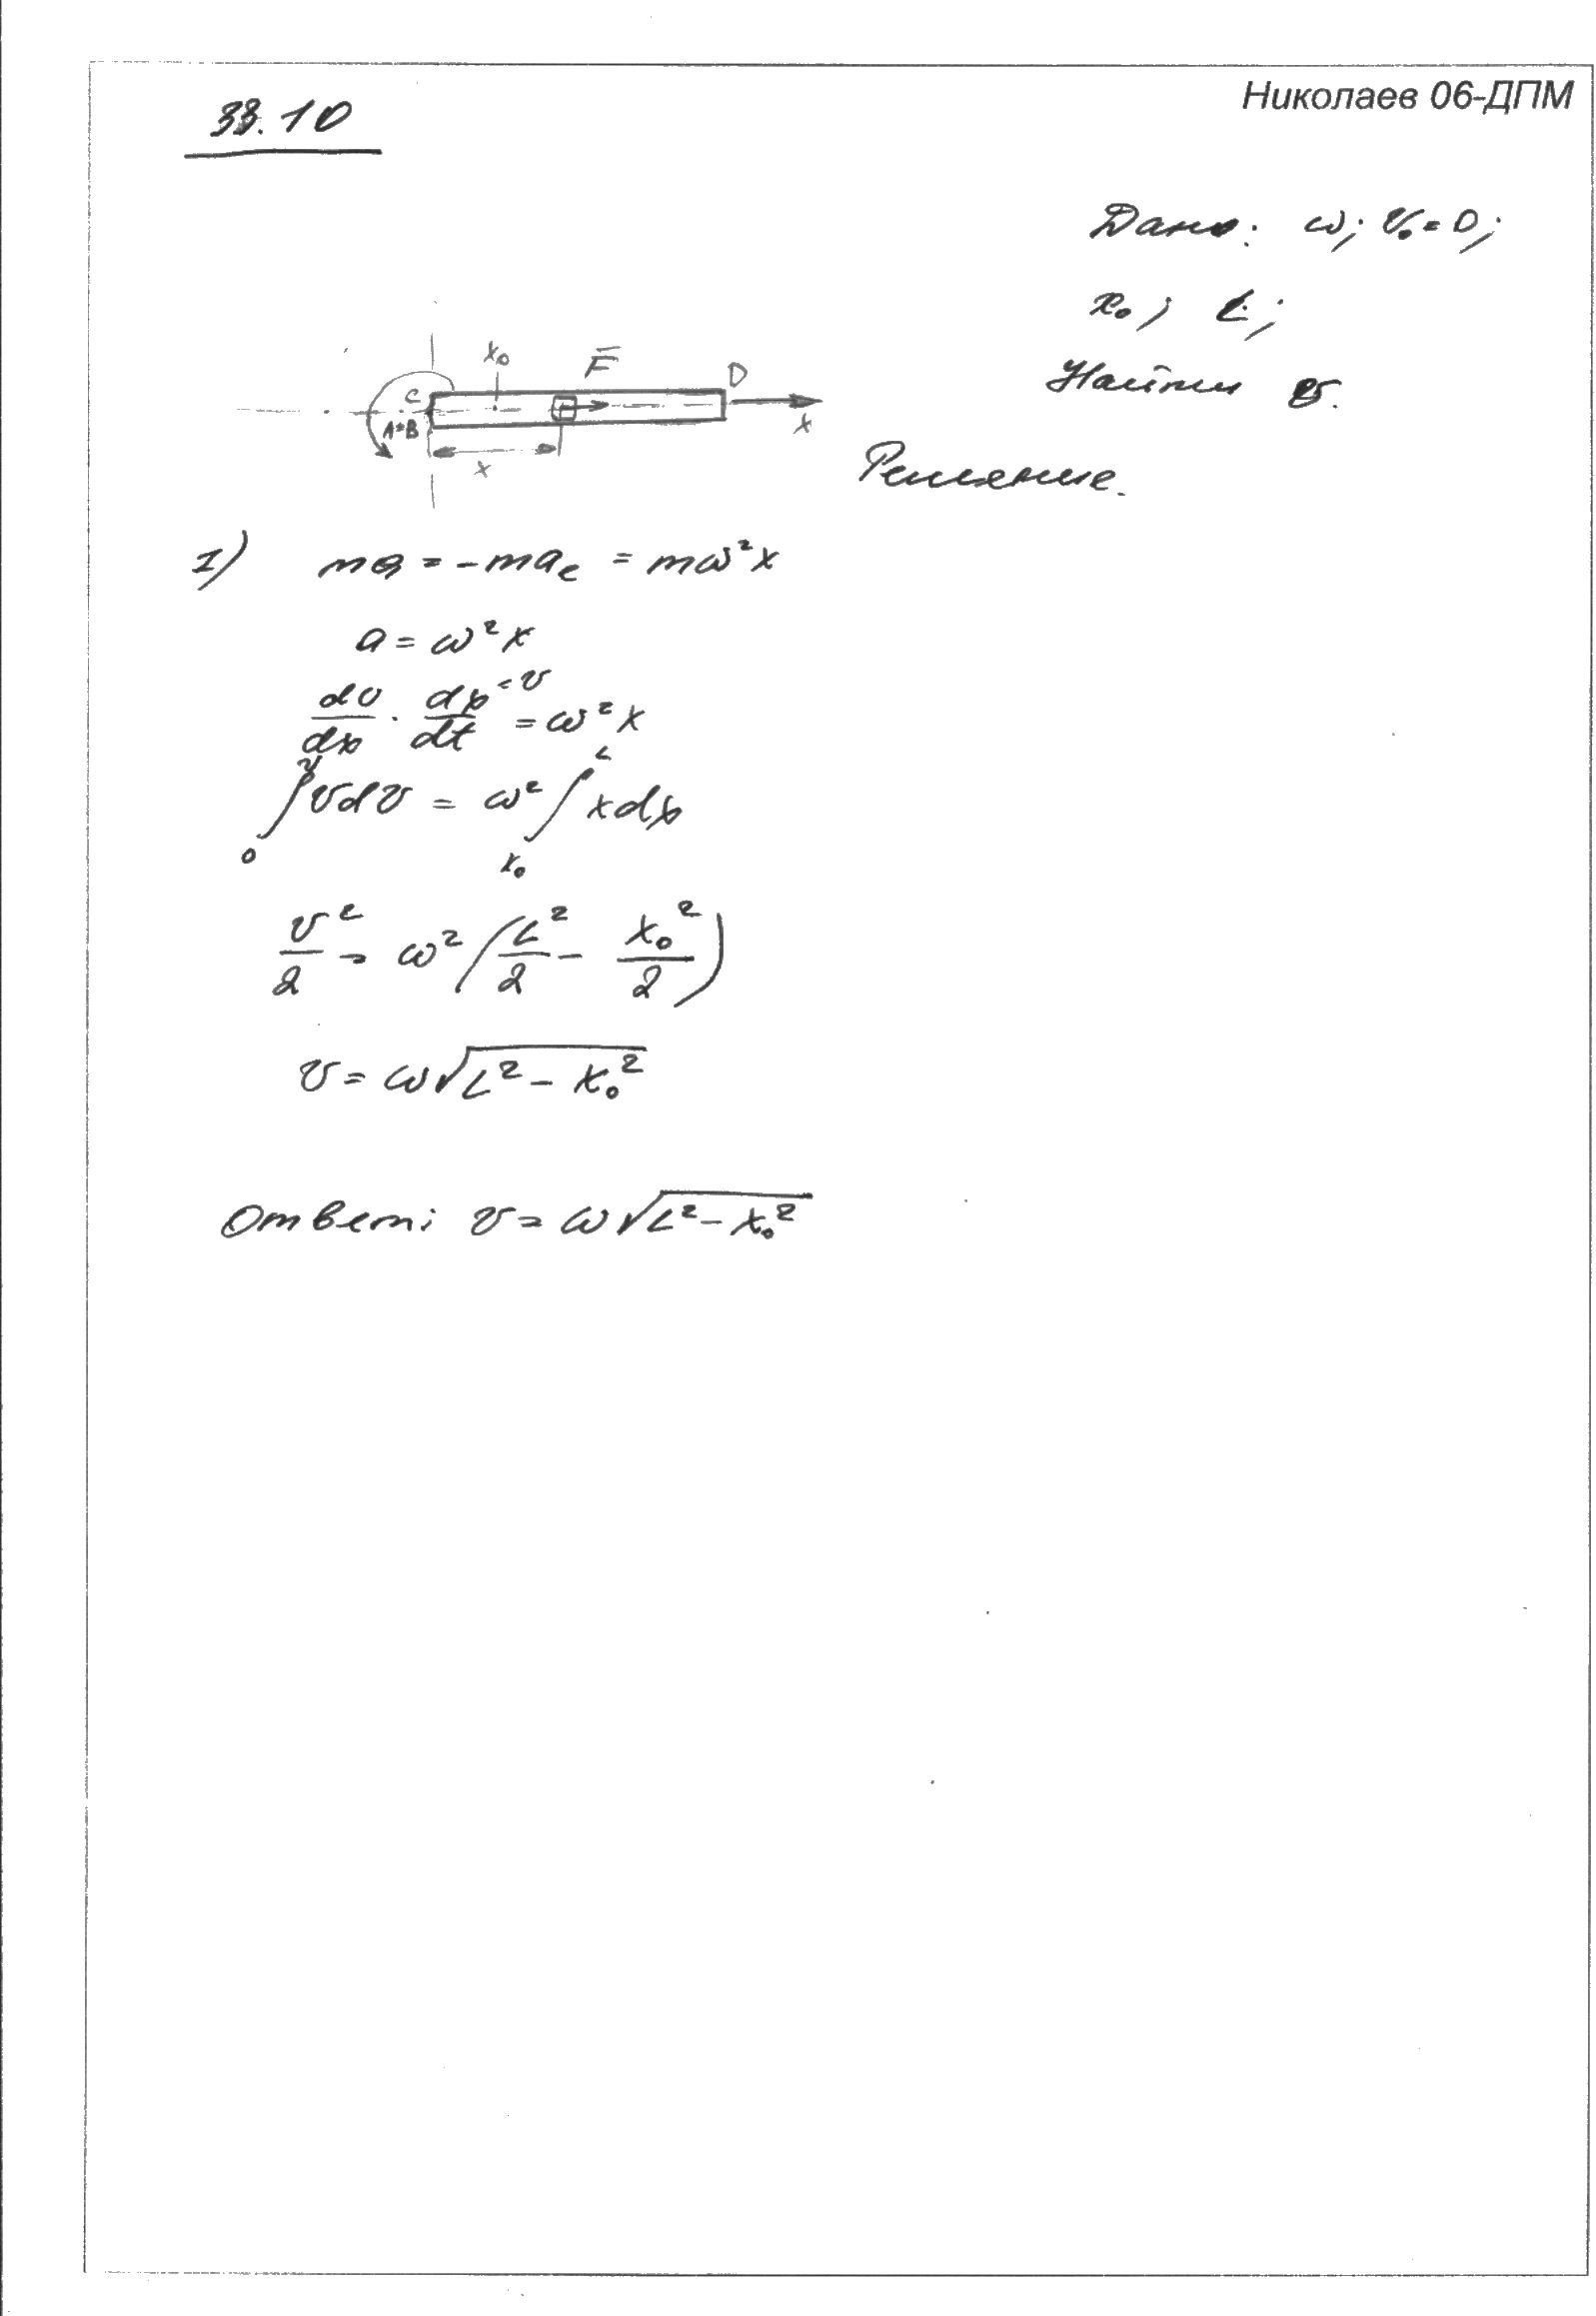 Николаев 06-ДПМ
33.10
Дано: ω; v₀=0;
x₀; L;
Найти v.
x₀ F̄ D
C
A≡B
x x
Решение.
1) ma = -maₑ = mω²x
a = ω²x
dv/dx · dx/dt = ω²x
= v
∫₀ᵛ v dv = ω² ∫ₓ₀ᴸ x dx
v²/2 = ω² (L²/2 - x₀²/2)
v = ω√(L² - x₀²)
Ответ: v = ω√(L² - x₀²)